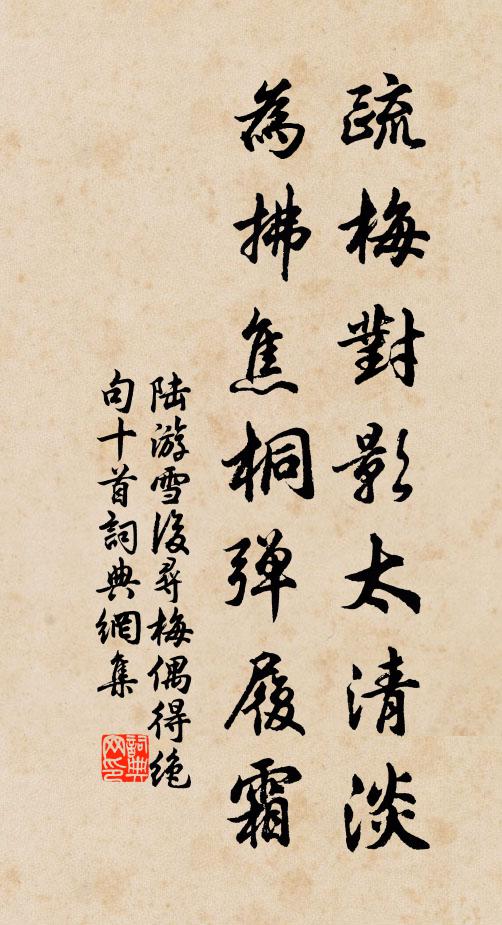 疏梅對影太清淡
為拂焦桐弹履霜
陆游雪後尋梅偶得绝
句十首詞典網集
詞典
网印